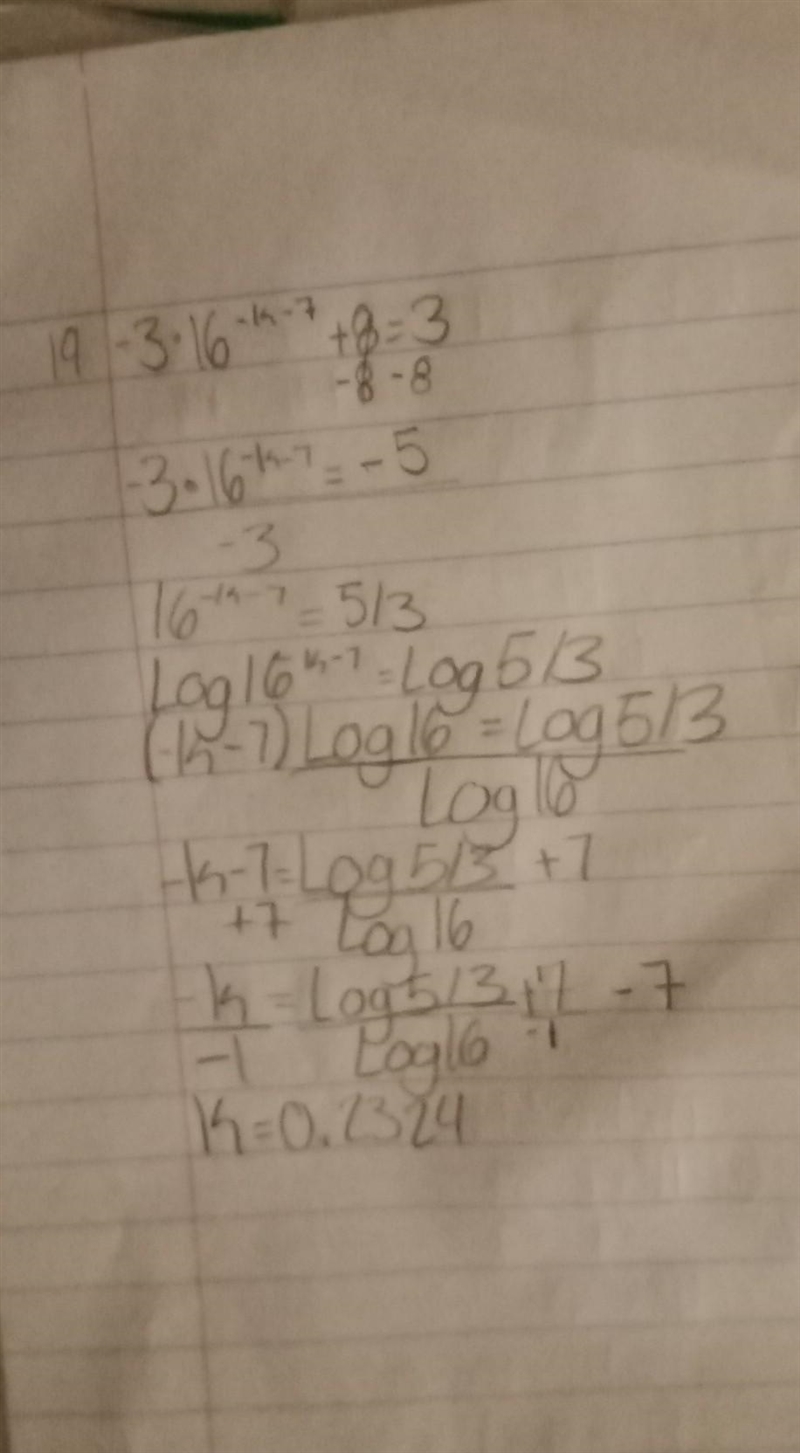 19 -3·16^-k-7 +8=3
-8 -8
-3·16^-k-7 = -5
-3
16^-k-7 = 5/3
Log16^k-7 = Log5/3
(-k-7)Log16 = Log5/3
Log16
-k-7=Log5/3 +7
+7 Log16
-k = Log5/3 +7 -7
-1 Log16 -1
k=0.2324